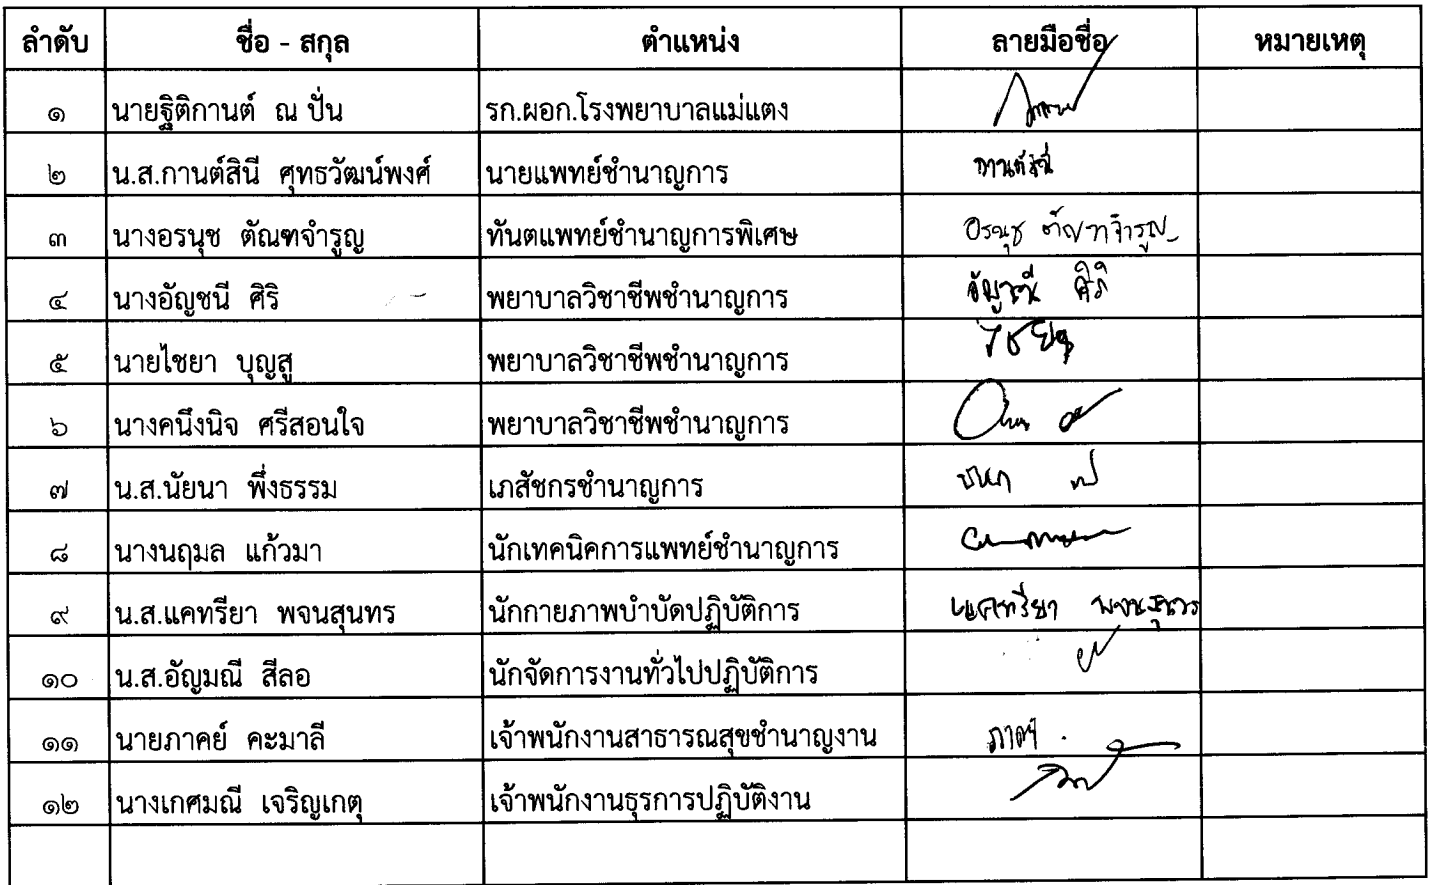 ลำดับ ชื่อ - สกุล ตำแหน่ง ลายมือชื่อ หมายเหตุ
๑ นายฐิติกานต์ ณ ปั่น รก.ผอก.โรงพยาบาลแม่แตง
๒ น.ส.กานต์สินี ศุทธวัฒน์พงศ์ นายแพทย์ชำนาญการ กานต์สินี
๓ นางอรนุช ตัณฑจำรูญ ทันตแพทย์ชำนาญการพิเศษ อรนุช ตัณฑจำรูญ
๔ นางอัญชนี ศิริ พยาบาลวิชาชีพชำนาญการ อัญชนี ศิริ
๕ นายไชยา บุญสู พยาบาลวิชาชีพชำนาญการ ไชยา
๖ นางคนึงนิจ ศรีสอนใจ พยาบาลวิชาชีพชำนาญการ
๗ น.ส.นัยนา พึ่งธรรม เภสัชกรชำนาญการ
๘ นางนฤมล แก้วมา นักเทคนิคการแพทย์ชำนาญการ
๙ น.ส.แคทรียา พจนสุนทร นักกายภาพบำบัดปฏิบัติการ แคทรียา พจนสุนทร
๑๐ น.ส.อัญมณี สีลอ นักจัดการงานทั่วไปปฏิบัติการ
๑๑ นายภาคย์ คะมาลี เจ้าพนักงานสาธารณสุขชำนาญงาน ภาคย์
๑๒ นางเกศมณี เจริญเกตุ เจ้าพนักงานธุรการปฏิบัติงาน